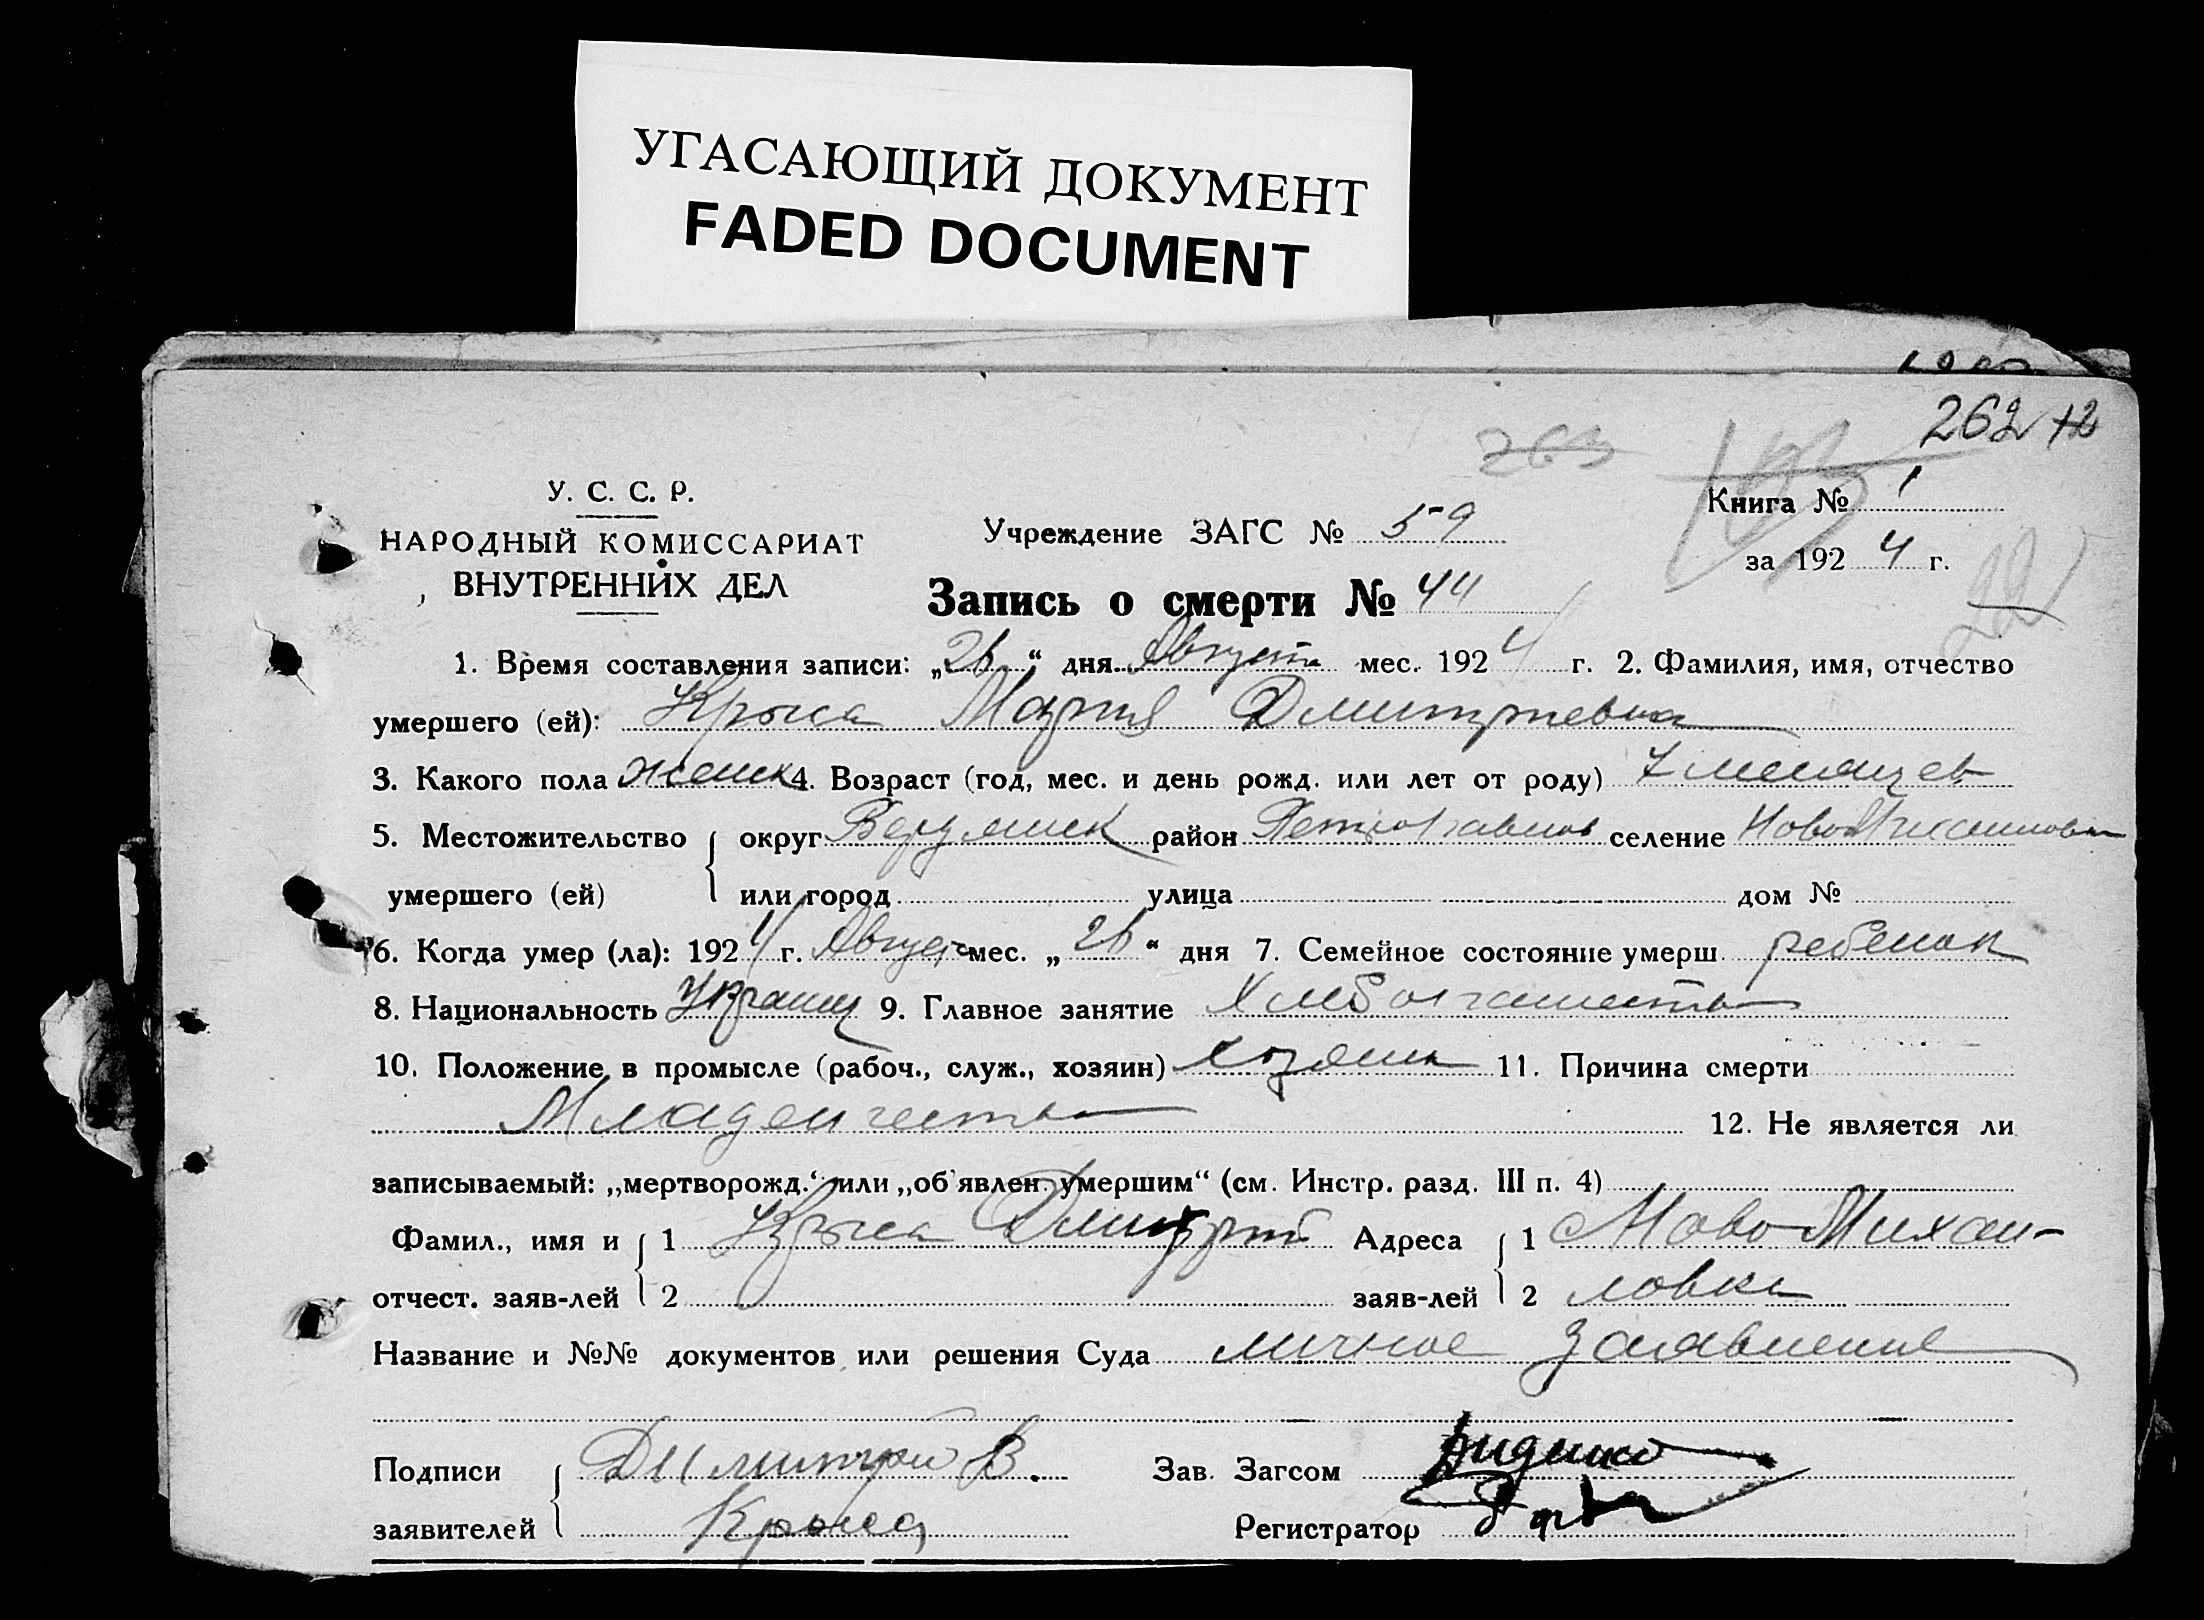 УГАСАЮЩИЙ ДОКУМЕНТ
FADED DOCUMENT
262
263
У. С. С. Р.
Книга № 1
НАРОДНЫЙ КОМИССАРИАТ
Учреждение ЗАГС № 59
ВНУТРЕННИХ ДЕЛ
за 1924 г.
221
Запись о смерти № 44
1. Время составления записи: „26“ дня Август мес. 1924 г. 2. Фамилия, имя, отчество
умершего (ей): Крыса Мария Дмитриевна
3. Какого пола женск 4. Возраст (год, мес. и день рожд. или лет от роду) 7 месяцев
5. Местожительство округ район Петропавлов селение НовоМихайловка
умершего (ей) или город улица дом №
6. Когда умер (ла): 1924 г. Август мес. „26“ дня 7. Семейное состояние умерш. ребенок
8. Национальность Украин 9. Главное занятие Хлебопашество
10. Положение в промысле (рабоч., служ., хозяин) хозяин 11. Причина смерти
Младенчество 12. Не является ли
записываемый: „мертворожд.“ или „об'явлен. умершим“ (см. Инстр. разд. III п. 4)
Фамил., имя и 1 Крыса Дмитрий Адреса 1 Ново Михай-
отчест. заяв-лей 2 заяв-лей 2 ловка
Название и №№ документов или решения Суда личное заявление
Подписи Димитрий В. Зав. Загсом
заявителей Крыса Регистратор